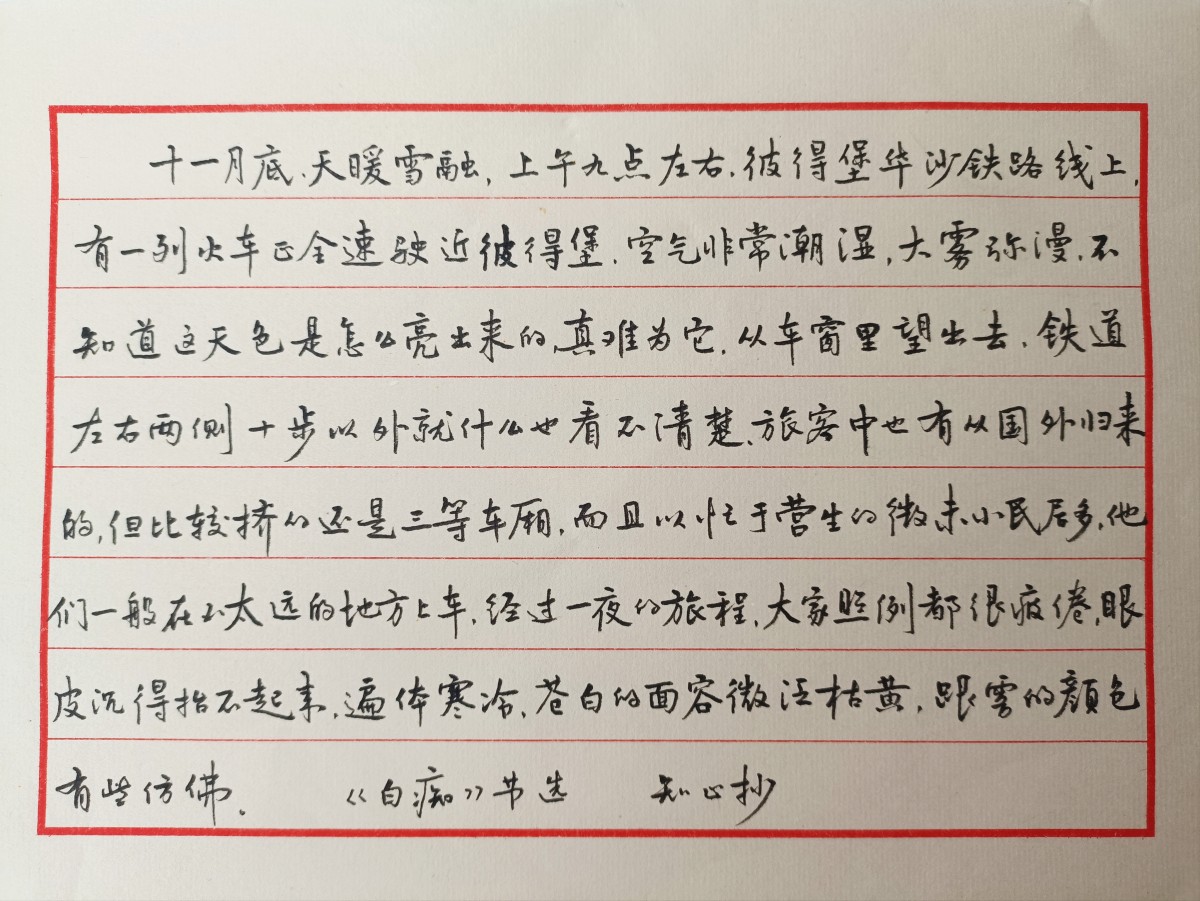 十一月底、天暖雪融，上午九点左右，彼得堡华沙铁路线上，
有一列火车正全速驶近彼得堡．空气非常潮湿，大雾弥漫，不
知道这天色是怎么亮出来的，真难为它．从车窗里望出去．铁道
左右两侧十步以外就什么也看不清楚、旅客中也有从国外归来
的，但比较挤的还是三等车厢，而且以忙于营生的微末小民居多，他
们一般在不太远的地方上车．经过一夜的旅程，大家照例都很疲倦，眼
皮沉得抬不起来，遍体寒冷，苍白的面容微泛枯黄，跟雾的颜色
有些仿佛． 《白痴》节选 知心抄